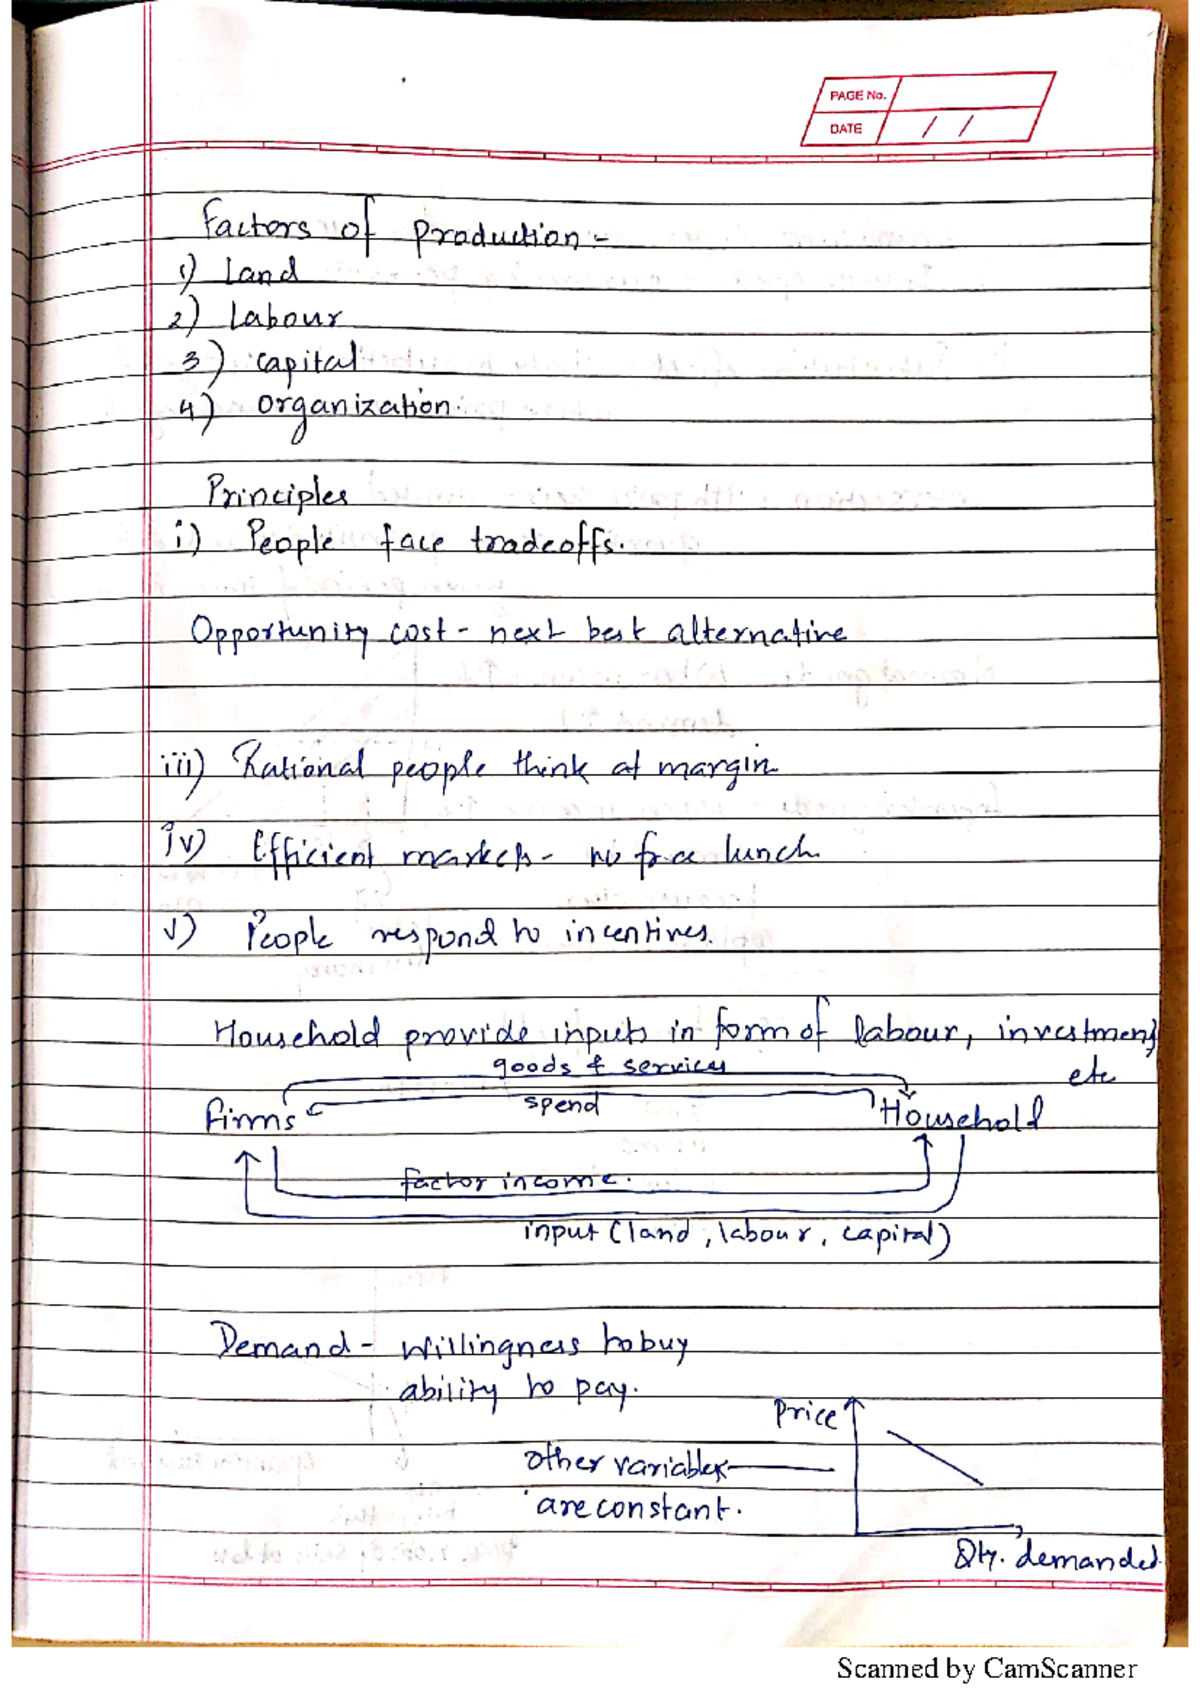 PAGE No.
DATE / /
Factors of production -
1) Land
2) Labour
3) capital
4) organization.
Principles
i) People face tradeoffs.
Opportunity cost - next best alternative
iii) Rational people think at margin
iv) Efficient markets - no free lunch
v) People respond to incentives.
Household provide inputs in form of labour, investment,
etc
goods & services
spend
Firms Household
factor income.
input (land, labour, capital)
Demand - Willingness to buy
ability to pay.
Price
other variables
are constant.
Qty. demanded
Scanned by CamScanner